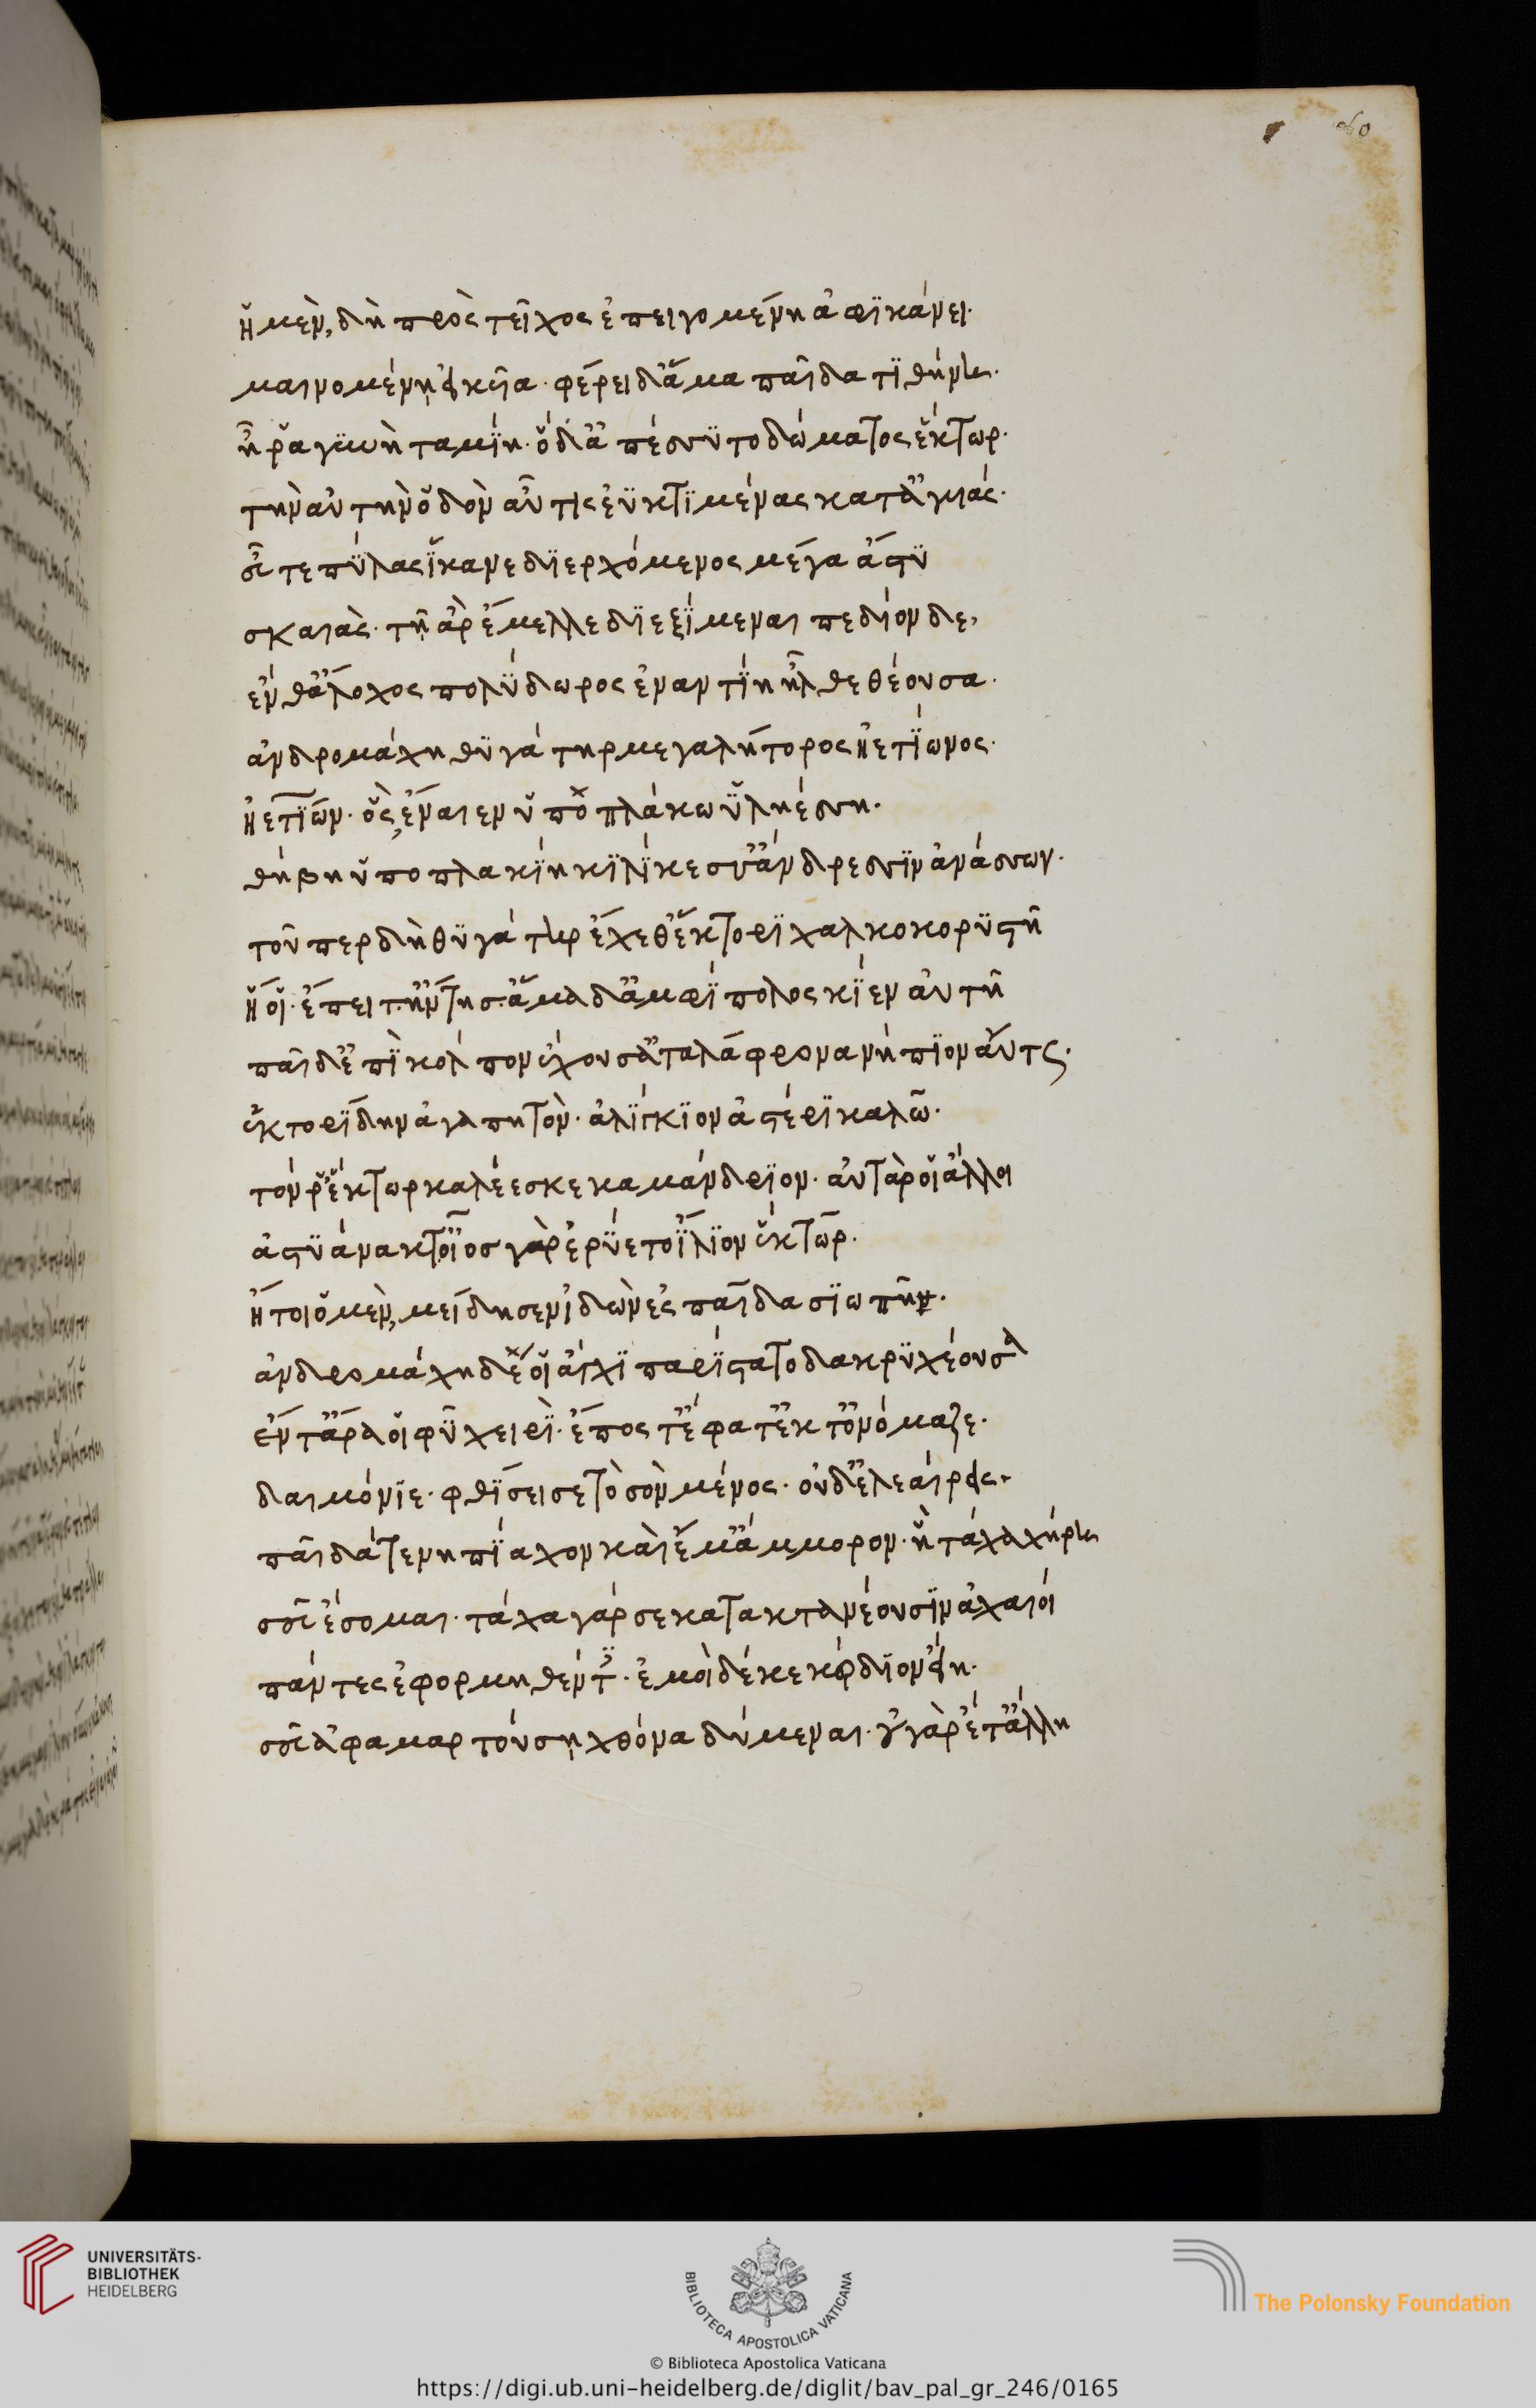 80
ἣ μὲν δὴ πρὸς τεῖχος ἐπειγομένη ἀφϊκάνει·
μαινομένῃ ἐϊκυῖα· φέρει δ' ἅμα παῖδα τϊθήνη·
ἦ ῥα γϋνὴ ταμΐη· ὃ δ' ἀπέσσϋτο δώματος ἕκτωρ·
τὴν αὐτὴν ὁδὸν αὖτις ἐϋκτϊμένας κατ' ἀγυιάς·
εὖτε πΰλας ἵκανε δϊερχόμενος μέγα ἄστϋ
σκαιὰς· τῇ ἄρ' ἔμελλε δϊεξΐμεναι πεδίον δε,
ἔνθ' ἄλοχος πολΰδωρος ἐναντΐη ἦλθε θέουσα·
ἀνδρομάχη θϋγάτηρ μεγαλήτορος ἠετΐωνος·
ἠετΐων· ὃς ἔναιεν ὑπὸ πλάκω ὑληέσση·
θήβη ὑποπλακΐη κϊλΐκεσσ' ἄνδρεσσϊν ἀνάσσων·
τοῦ περ δὴ θϋγάτηρ ἔχεθ' ἕκτορϊ χαλκοκορϋστῆ
ἥ οἱ· ἔπειτ' ἤντησ' ἅμα δ' ἀμφΐπολος κΐεν αὐτῆ
παῖδ' ἐπϊ κόλπον ἔχουσ' ἀταλάφρονα νήπϊον αὕτως·
ἑκτορΐδην ἀγαπητὸν· ἀλΐγκϊον ἀστέρϊ καλῶ·
τόν ῥ' ἕκτωρ καλέεσκε καμάνδρϊον· αὐτὰρ οἱ ἄλλοι
ἀστϋάνακτ' οἶος γὰρ ἐρΰετο ἴλϊον ἕκτωρ·
ἤτοι ὃ μὲν, μείδησεν ἰδὼν ἐς παῖδα σϊωπῆ·
ἀνδρομάχη δέ οἱ ἄγχϊ παρΐστατο δακρϋχέουσα
ἔν τ' ἄρα οἱ φῦ χειρΐ· ἔπος τ' ἔφατ' ἔκ τ' ὀνόμαζε·
δαιμόνϊε· φθΐσει σε τὸ σὸν μένος· οὐδ' ἐλεαίρεις·
παῖδά τε νηπΐαχον καὶ ἔμ' ἄμμορον· ἣ τάχα χήρη
σεῦ ἔσομαι· τάχα γάρ σε κατακτανέουσϊν ἀχαιοί
πάντες ἐφορμηθέντ̈· ἐμοὶ δέ κε κέρδϊον εἴη·
σεῦ ἀφαμαρτούσῃ χθόνα δύμεναι· οὐ γὰρ ἔτ' ἄλλη
UNIVERSITÄTS-
BIBLIOTHEK
HEIDELBERG
BIBLIOTECA APOSTOLICA VATICANA
The Polonsky Foundation
© Biblioteca Apostolica Vaticana
https://digi.ub.uni-heidelberg.de/diglit/bav_pal_gr_246/0165